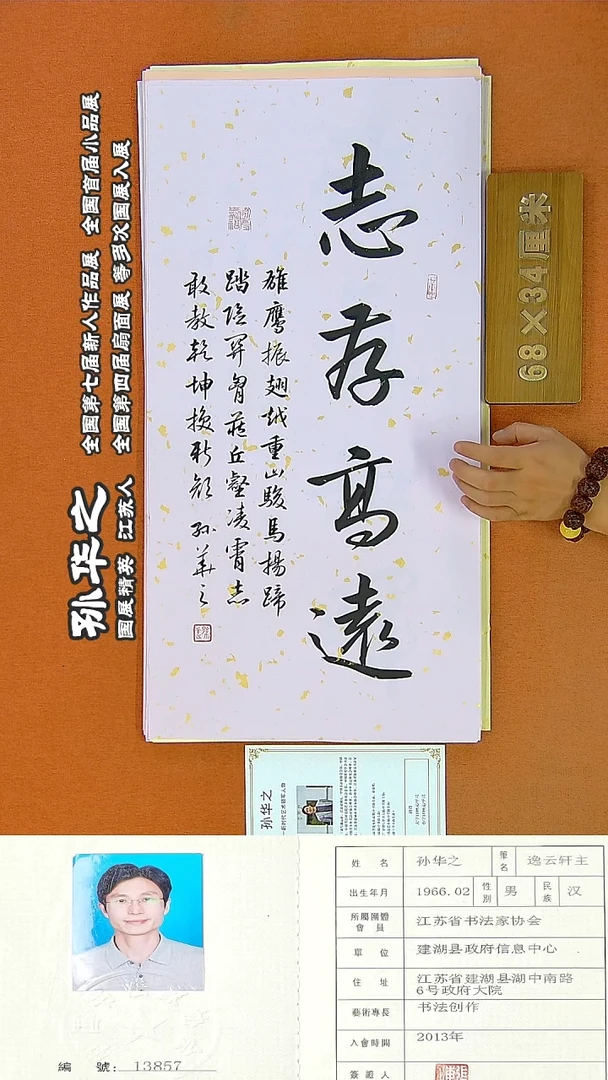 孙华之
国展精英 江苏人
全国第七届新人作品展 全国首届小品展
全国第四届扇面展 等多次国展入展
志存高遠
雄鹰振翅越重山駿馬揚蹄
踏险关胷藏丘壑凌霄志
敢教乾坤换新颜 孙華之
68×34厘米
孙华之
姓 名 孙华之 筆名 逸云轩主
出生年月 1966.02 性別 男 民族 汉
所屬團體會員 江苏省书法家协会
單 位 建湖县政府信息中心
住 址 江苏省建湖县湖中南路
6号政府大院
藝術專長 书法创作
入會時間 2013年
簽證人
編 號: 13857